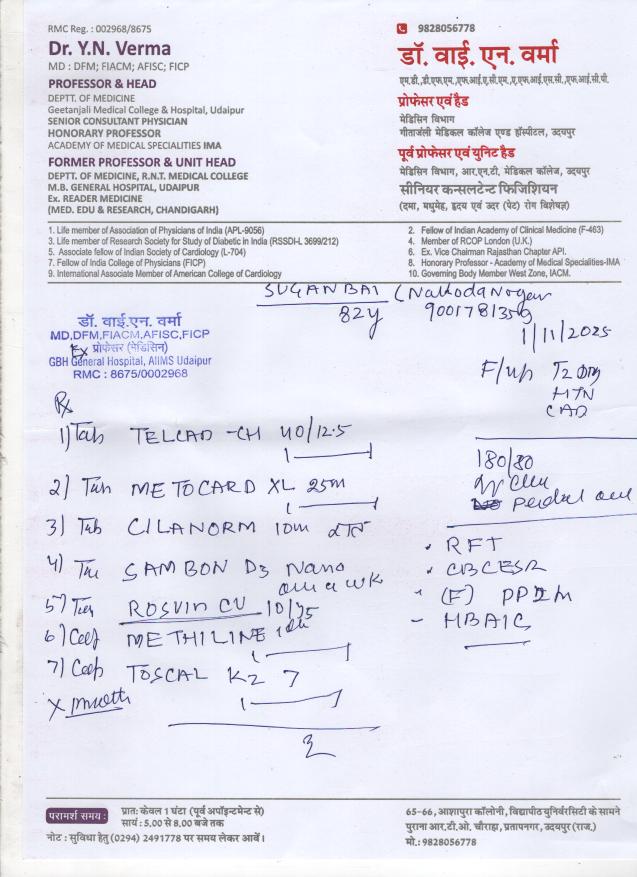 RMC Reg. : 002968/8675
Dr. Y.N. Verma
MD : DFM; FIACM; AFISC; FICP
PROFESSOR & HEAD
DEPTT. OF MEDICINE
Geetanjali Medical College & Hospital, Udaipur
SENIOR CONSULTANT PHYSICIAN
HONORARY PROFESSOR
ACADEMY OF MEDICAL SPECIALITIES IMA
FORMER PROFESSOR & UNIT HEAD
DEPTT. OF MEDICINE, R.N.T. MEDICAL COLLEGE
M.B. GENERAL HOSPITAL, UDAIPUR
Ex. READER MEDICINE
(MED. EDU & RESEARCH, CHANDIGARH)
9828056778
डॉ. वाई. एन. वर्मा
एम.डी.,डी.एफ.एम.,एफ.आई.ए.सी.एम.,ए.एफ.आई.एस.सी.,एफ.आई.सी.पी.
प्रोफेसर एवं हैड
मेडिसिन विभाग
गीतांजली मेडिकल कॉलेज एण्ड हॉस्पीटल, उदयपुर
पूर्व प्रोफेसर एवं यूनिट हैड
मेडिसिन विभाग, आर.एन.टी. मेडिकल कॉलेज, उदयपुर
सीनियर कन्सलटेन्ट फिजिशियन
(दमा, मधुमेह, हृदय एवं उदर (पेट) रोग विशेषज्ञ)
1. Life member of Association of Physicians of India (APL-9056)
3. Life member of Research Society for Study of Diabetic in India (RSSDI-L 3699/212)
5. Associate fellow of Indian Society of Cardiology (L-704)
7. Fellow of India College of Physicians (FICP)
9. International Associate Member of American College of Cardiology
2. Fellow of Indian Academy of Clinical Medicine (F-463)
4. Member of RCOP London (U.K.)
6. Ex. Vice Chairman Rajasthan Chapter API.
8. Honorary Professor - Academy of Medical Specialities-IMA
10. Governing Body Member West Zone, IACM.
SUGAN BAI (
82y 9001781359
1/11/2025
डॉ. वाई.एन. वर्मा
MD,DFM,FIACM,AFISC,FICP
Ex प्रोफेसर (मेडिसिन)
GBH General Hospital, AIIMS Udaipur
RMC : 8675/0002968
F/up T2 DM
HTN
CAD
Rx
1) Tab TELCAD -CH 40/12.5
2) Tab METOCARD XL 25m
3) Tab CILANORM 10m
4) SAMBON D3 Nano
once a wk
5) Tab ROSVIN CV 10/75
6) Cap METHILINE
7) Cap TOSCAL K2 7
X month
180/80
RFT
CBC ESR
(F) PP
HBA1C
परामर्श समय :
प्रात: केवल 1 घंटा (पूर्व अपॉइन्टमेन्ट से)
सायं : 5.00 से 8.00 बजे तक
नोट : सुविधा हेतु (0294) 2491778 पर समय लेकर आवें।
65-66, आशापुरा कॉलोनी, विद्यापीठ युनिवर्सिटी के सामने
पुराना आर.टी.ओ. चौराहा, प्रतापनगर, उदयपुर (राज.)
मो.: 9828056778